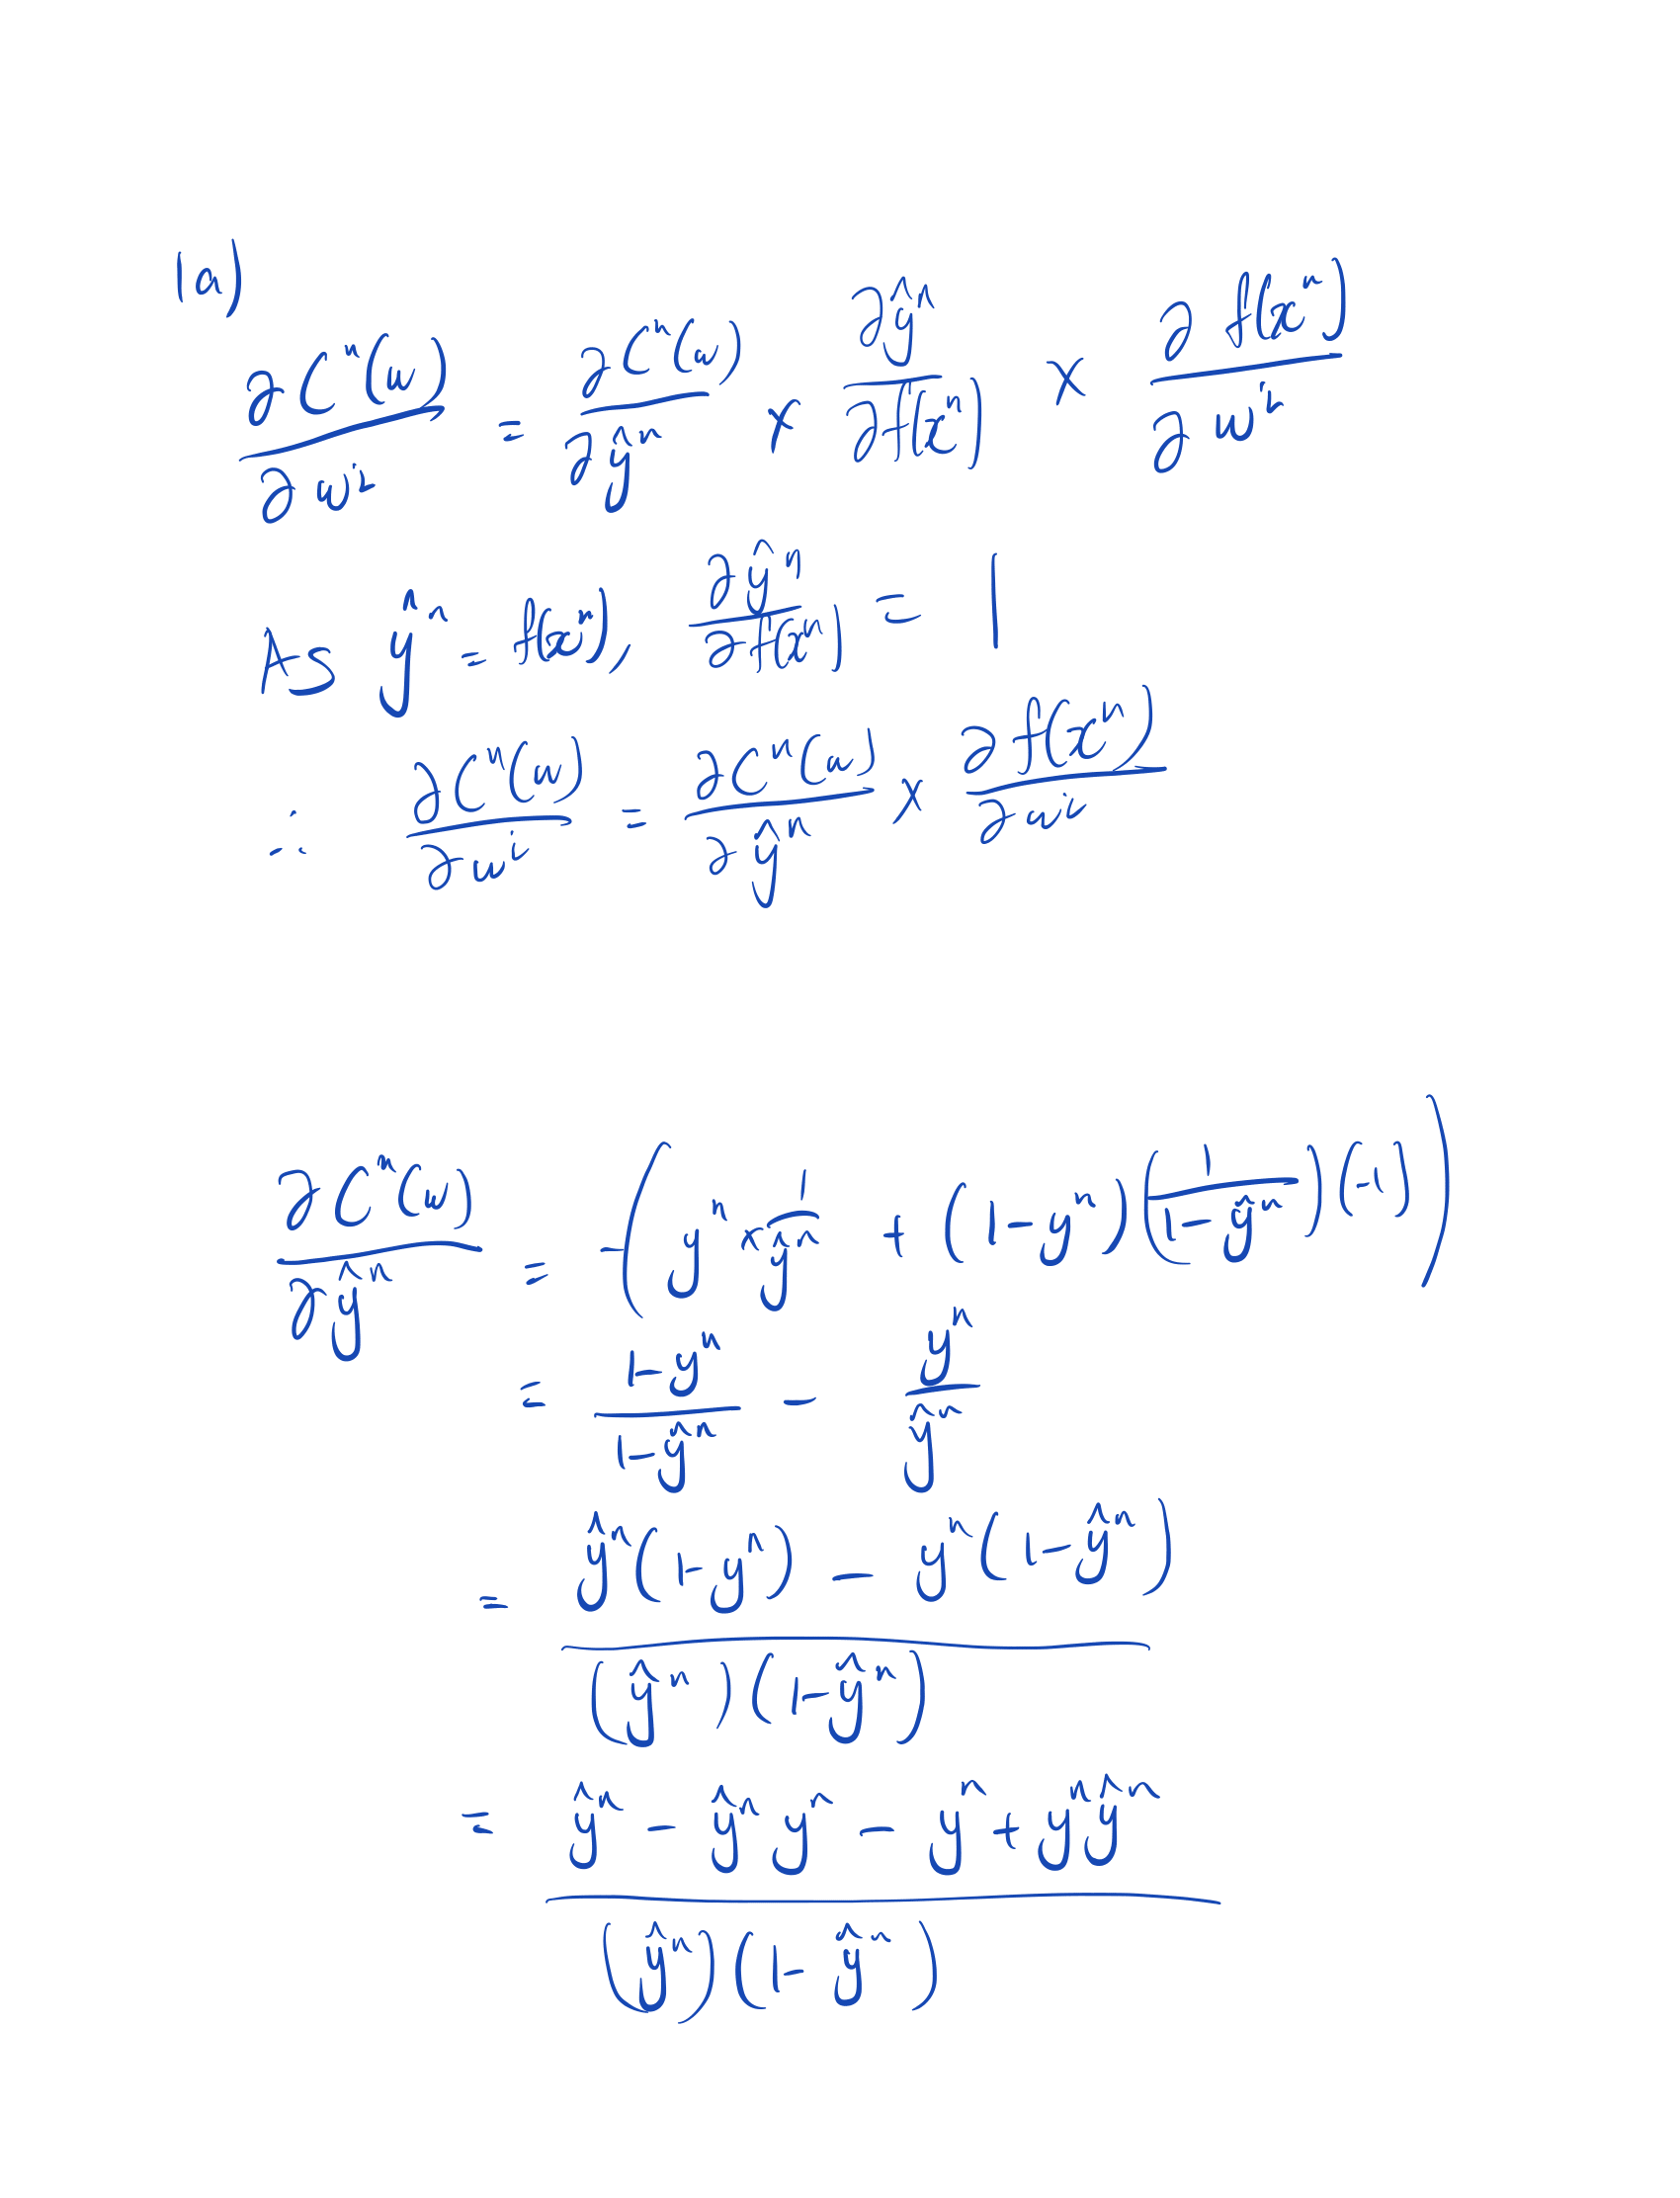 1a)
∂Cⁿ(w)/∂wⁱ = ∂Cⁿ(w)/∂ŷⁿ × ∂ŷⁿ/∂f(xⁿ) × ∂f(xⁿ)/∂wⁱ
As ŷⁿ = f(xⁿ), ∂ŷⁿ/∂f(xⁿ) = 1
∴ ∂Cⁿ(w)/∂wⁱ = ∂Cⁿ(w)/∂ŷⁿ × ∂f(xⁿ)/∂wⁱ
∂Cⁿ(w)/∂ŷⁿ = -(yⁿ × 1/ŷⁿ + (1-yⁿ)(1/(1-ŷⁿ))(-1))
= (1-yⁿ)/(1-ŷⁿ) - yⁿ/ŷⁿ
= (ŷⁿ(1-yⁿ) - yⁿ(1-ŷⁿ))/((ŷⁿ)(1-ŷⁿ))
= (ŷⁿ - ŷⁿyⁿ - yⁿ + yⁿŷⁿ)/((ŷⁿ)(1-ŷⁿ))